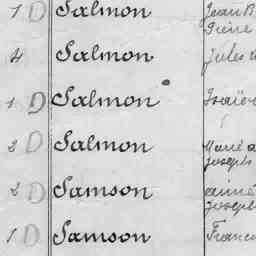 1 D Salmon Jean B
Pierre
4 Salmon Jules
1 D Salmon
2 D Salmon Marie
Joseph
2 D Samson Aimé
Joseph
1 D Samson Franc